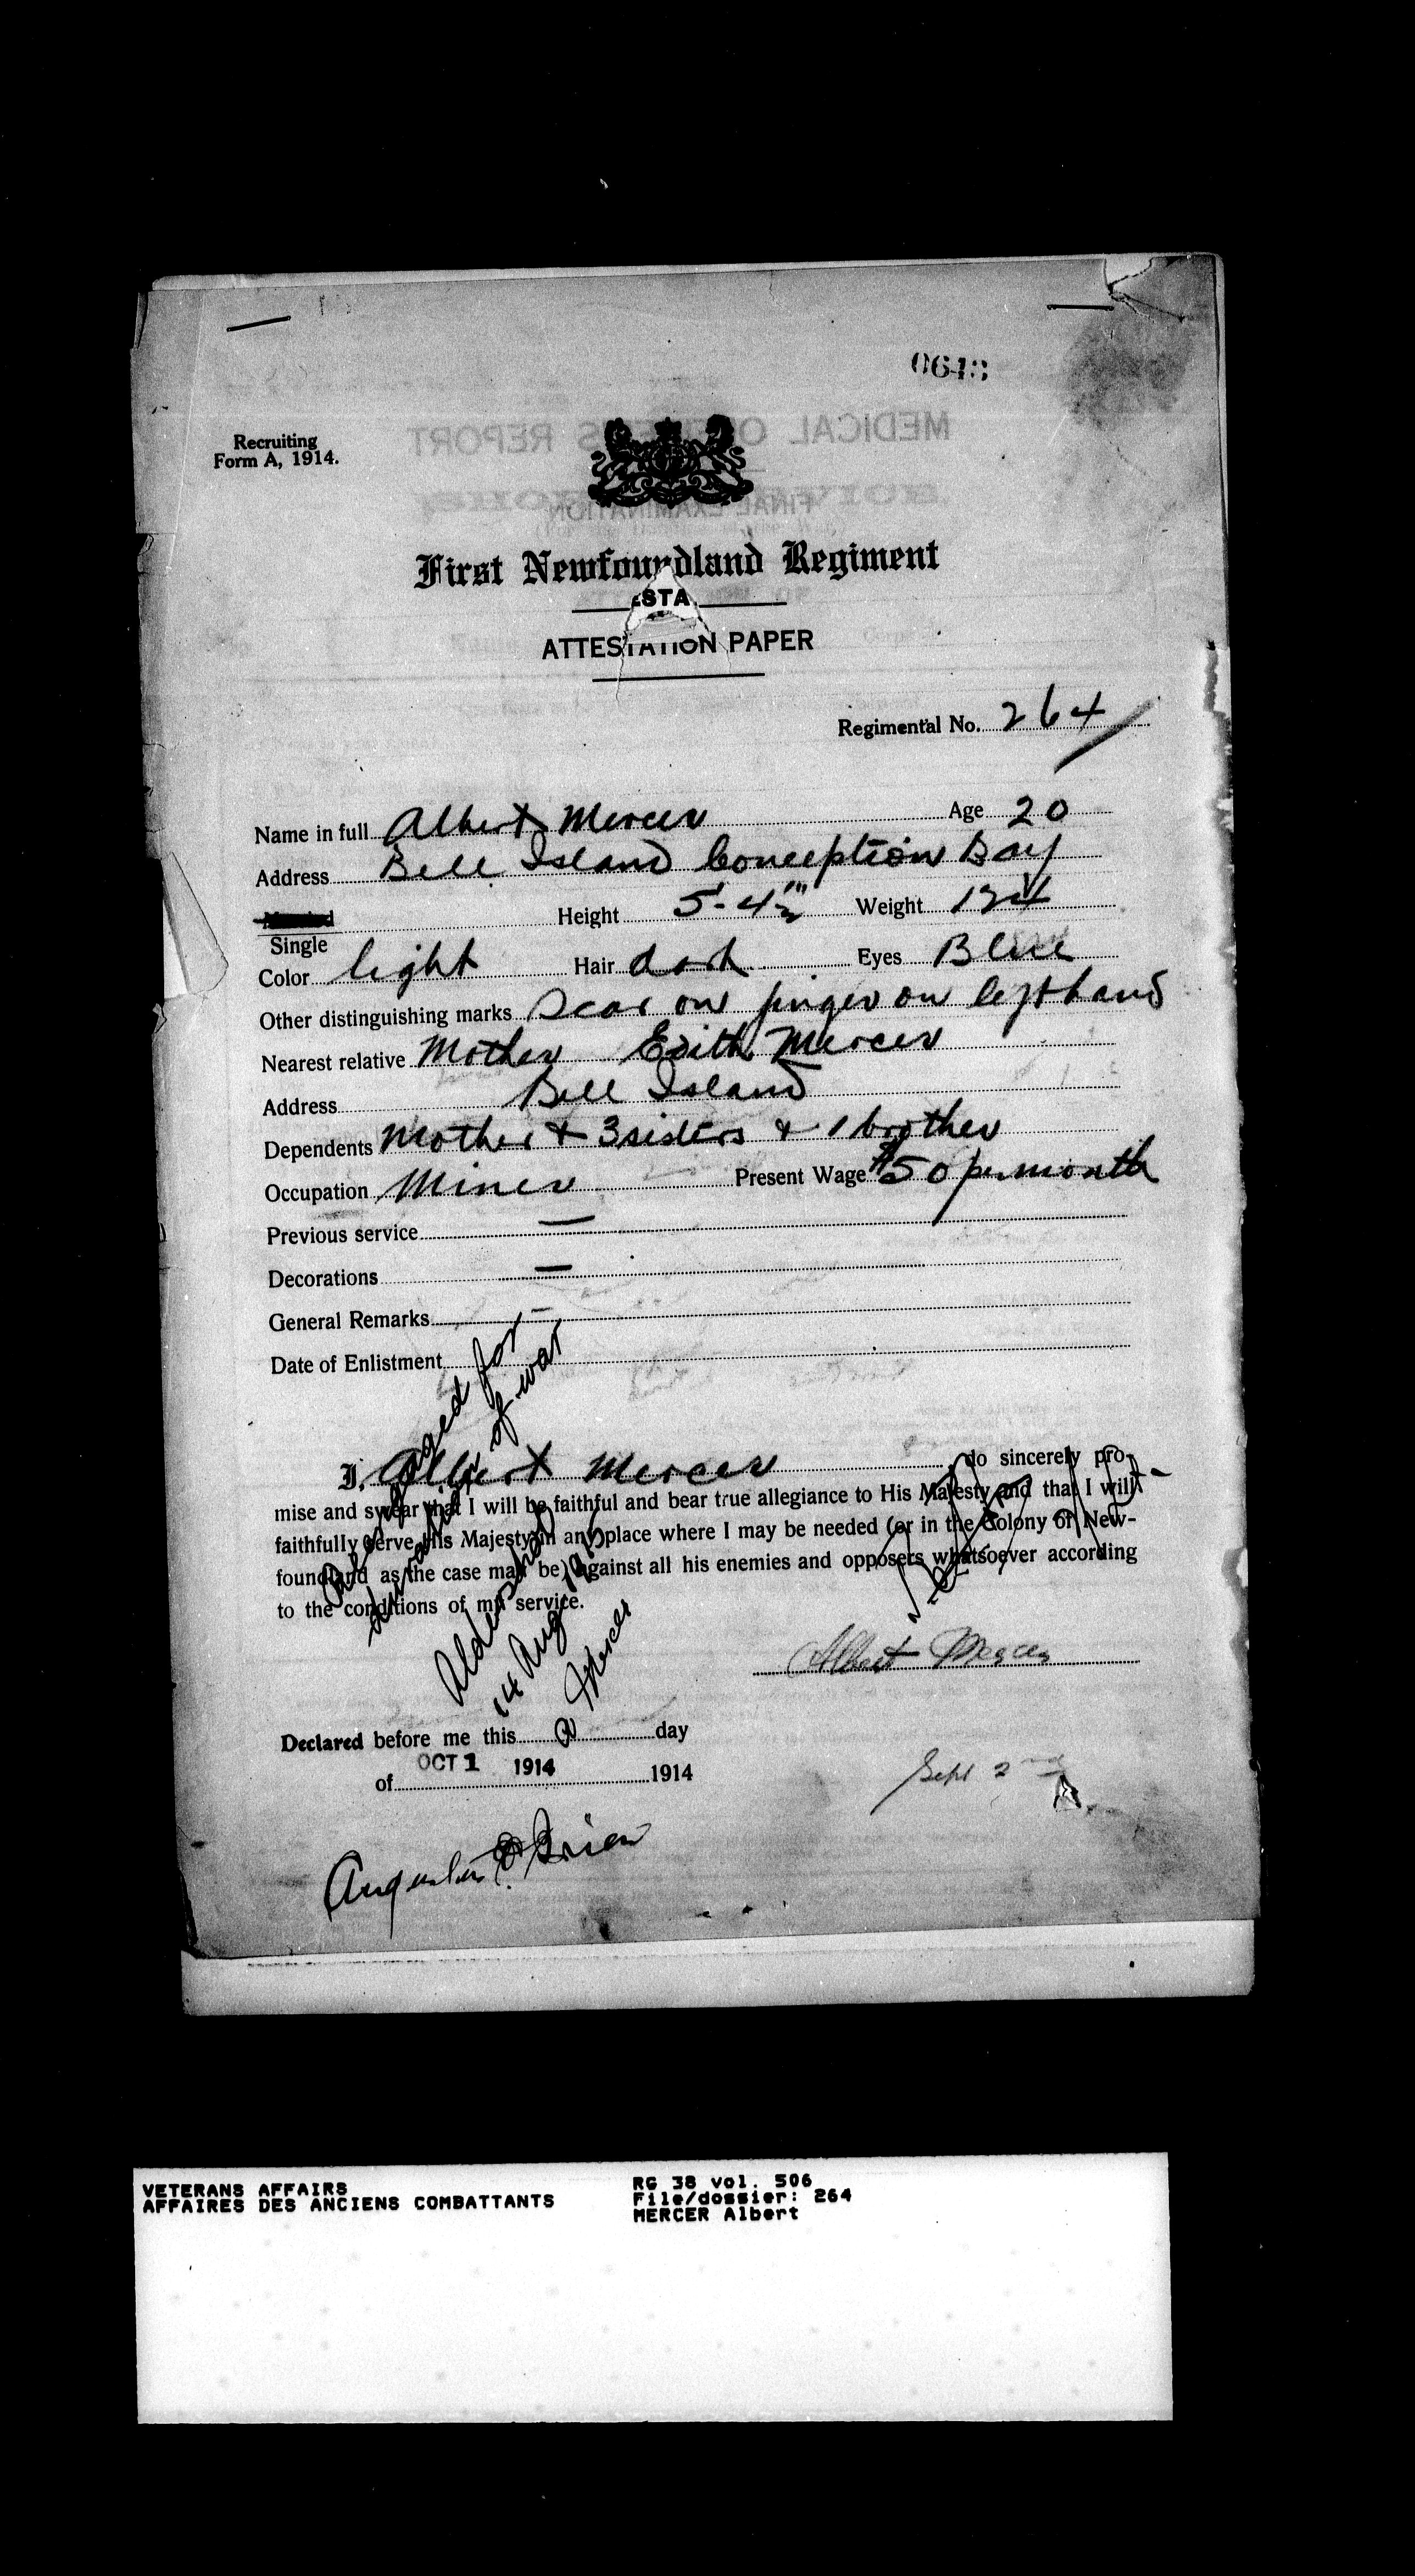 0643
Recruiting
Form A, 1914.
MEDICAL OFFICER'S REPORT
FINAL EXAMINATION
First Newfoundland Regiment
ESTA
ATTESTATION PAPER
Regimental No. 264
Name in full Albert Mercer Age 20
Address Bell Island Conception Bay
Married Height 5-4½" Weight 124
Single
Color light Hair dark Eyes Blue
Other distinguishing marks Scar on finger on left hand
Nearest relative Mother Edith Mercer
Address Bell Island
Dependents Mother + 3 sisters + 1 brother
Occupation Miner Present Wage $50 per month
Previous service —
Decorations —
General Remarks —
Date of Enlistment
I, Albert Mercer do sincerely pro-
mise and swear that I will be faithful and bear true allegiance to His Majesty and that I will
faithfully serve His Majesty in any place where I may be needed (or in the Colony of New-
foundland as the case may be) against all his enemies and opposers whatsoever according
to the conditions of my service.
for
duration of war
Aldershot
14 Aug 1915
A Mercer
Albert Mercer
Declared before me this day
of OCT 1 1914 1914
Sept 2nd
Augustus O'Brien
VETERANS AFFAIRS
AFFAIRES DES ANCIENS COMBATTANTS
RG 38 vol. 506
File/dossier: 264
MERCER Albert